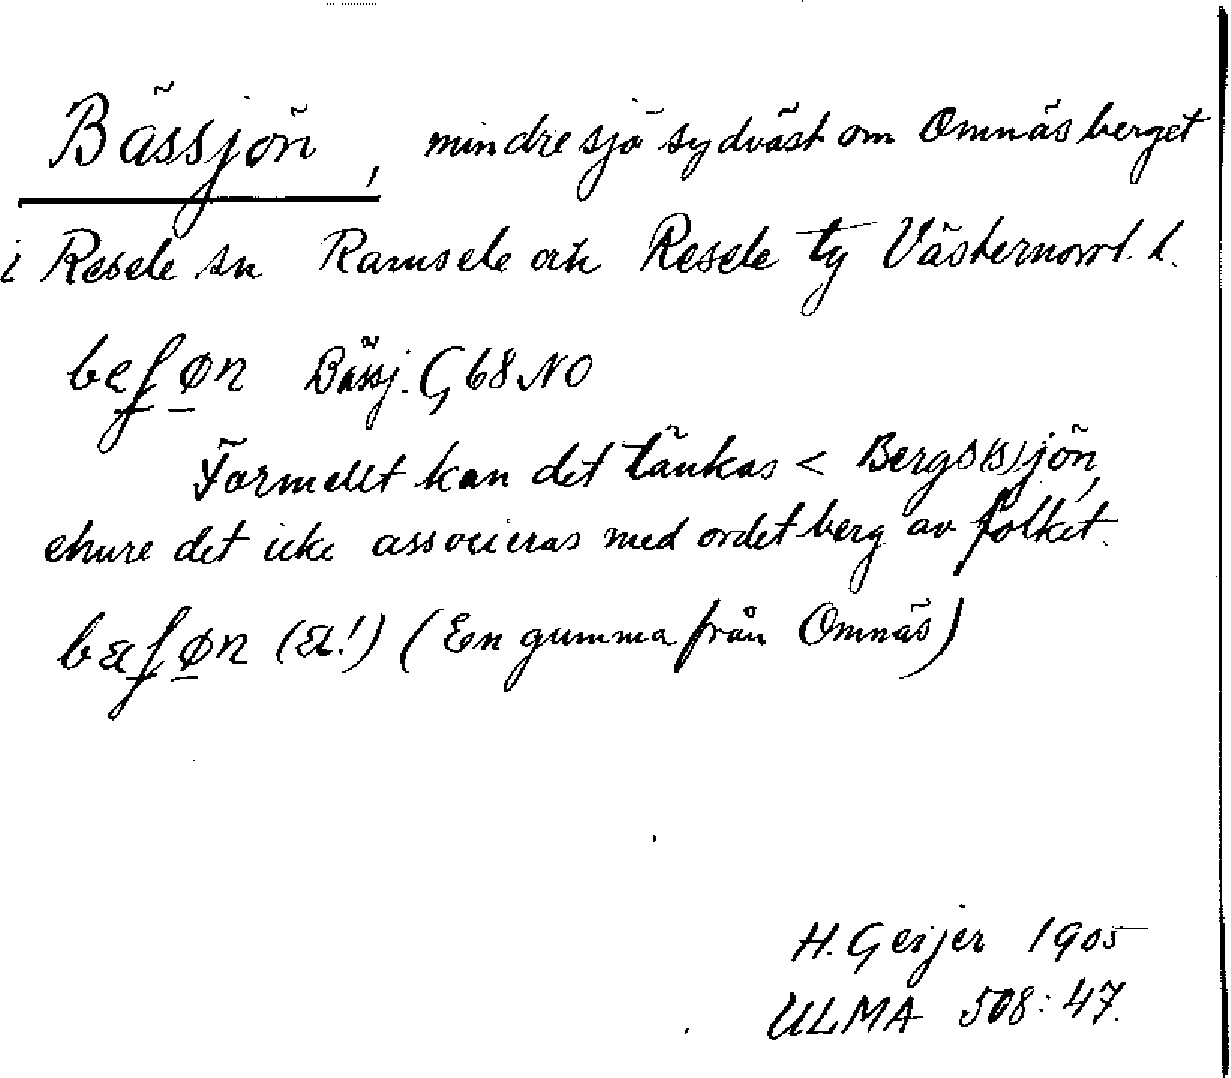 Bässjön, mindre sjö sydväst om Omnäsberget
i Resele sn Ramsele och Resele tg Västernorrl. l.
beʃøn Bässj. G 68 NO
Formellt kan det tänkas < Bergs(s)jön,
ehuru det icke associeras med ordet berg av folket.
bæʃøn (æ!) (En gumma från Omnäs)
H. Geijer 1905
ULMA 508:47.